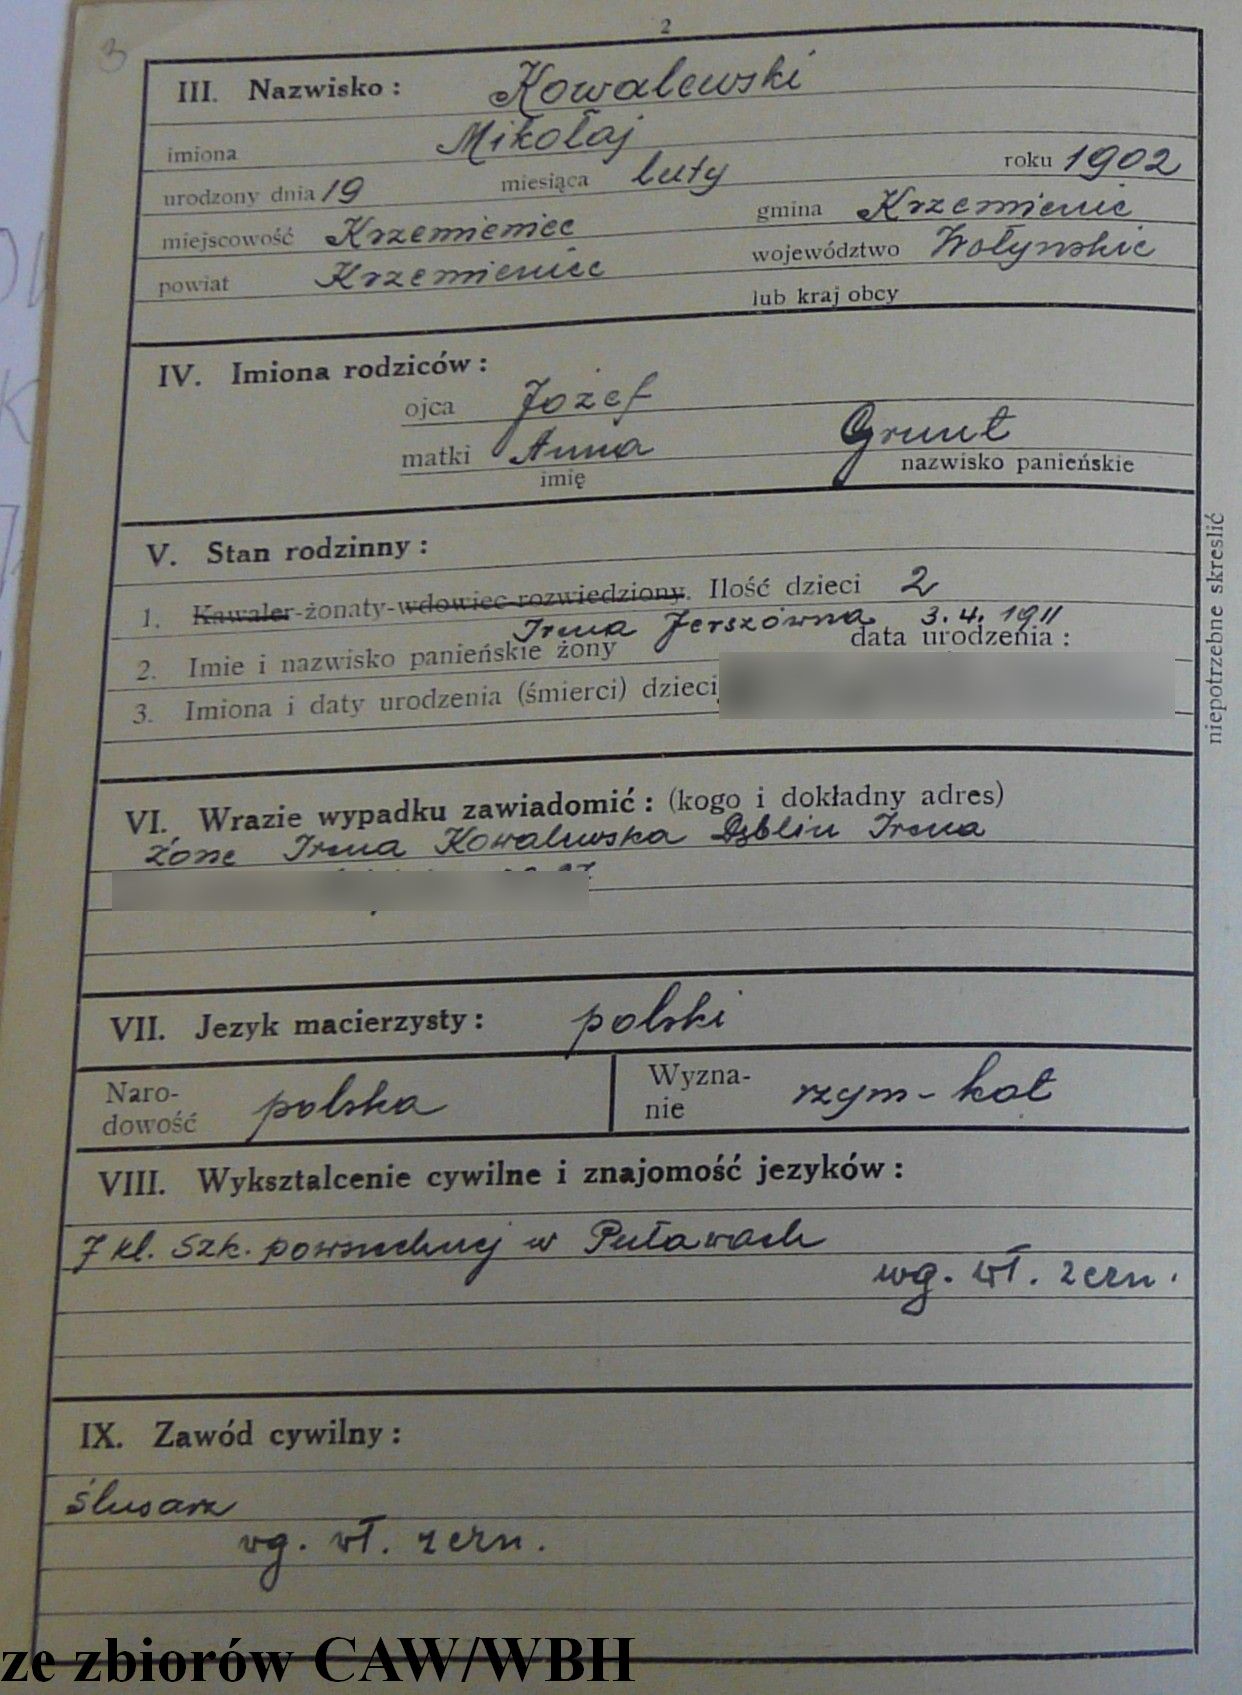 2
3
III. Nazwisko: Kowalewski
imiona Mikołaj
urodzony dnia 19 miesiąca luty roku 1902
miejscowość Krzemieniec gmina Krzemieniec
powiat Krzemieniec województwo Wołyńskie
lub kraj obcy
IV. Imiona rodziców:
ojca Józef
matki Anna Grunt
imię nazwisko panieńskie
V. Stan rodzinny:
1. Kawaler-żonaty-wdowiec-rozwiedziony. Ilość dzieci 2
Irena Jerszówna 3.4.1911
2. Imie i nazwisko panieńskie żony data urodzenia:
3. Imiona i daty urodzenia (śmierci) dzieci
niepotrzebne skreslić
VI. Wrazie wypadku zawiadomić: (kogo i dokładny adres)
Żonę Irena Kowalewska Dęblin Irena
VII. Jezyk macierzysty: polski
Naro-
dowość polska
Wyzna-
nie rzym-kat
VIII. Wyksztalcenie cywilne i znajomość jezyków:
7 kl. Szk. powszechnej w Puławach
wg. wł. zezn.
IX. Zawód cywilny:
ślusarz
wg. wł. zezn.
ze zbiorów CAW/WBH